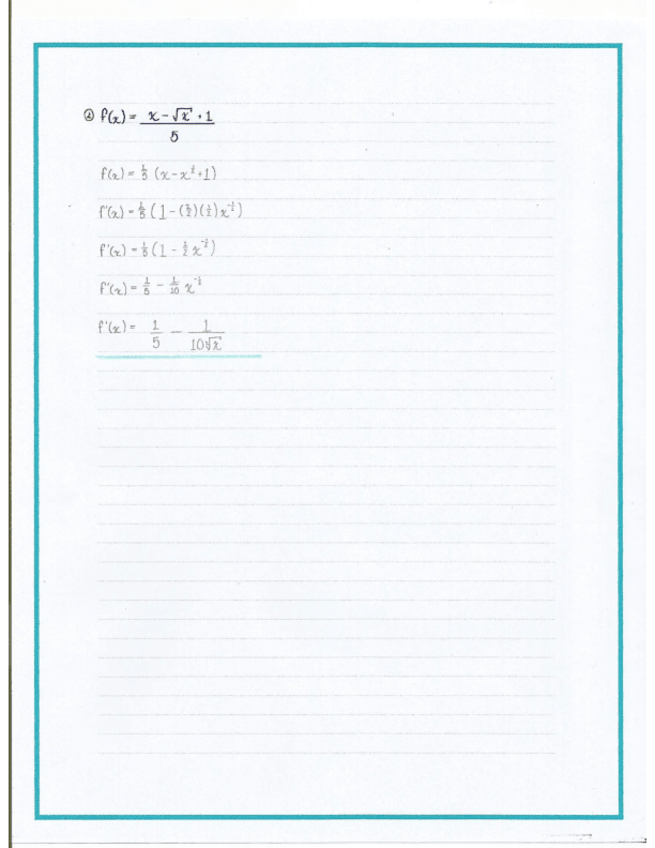 ② f(x) = x - √x + 1 / 5
f(x) = 1/5 (x - x^1/2 + 1)
f'(x) = 1/5 (1 - (1/2)(1/1)x^-1/2)
f'(x) = 1/5 (1 - 1/2 x^-1/2)
f'(x) = 1/5 - 1/10 x^-1/2
f'(x) = 1/5 - 1/10√x